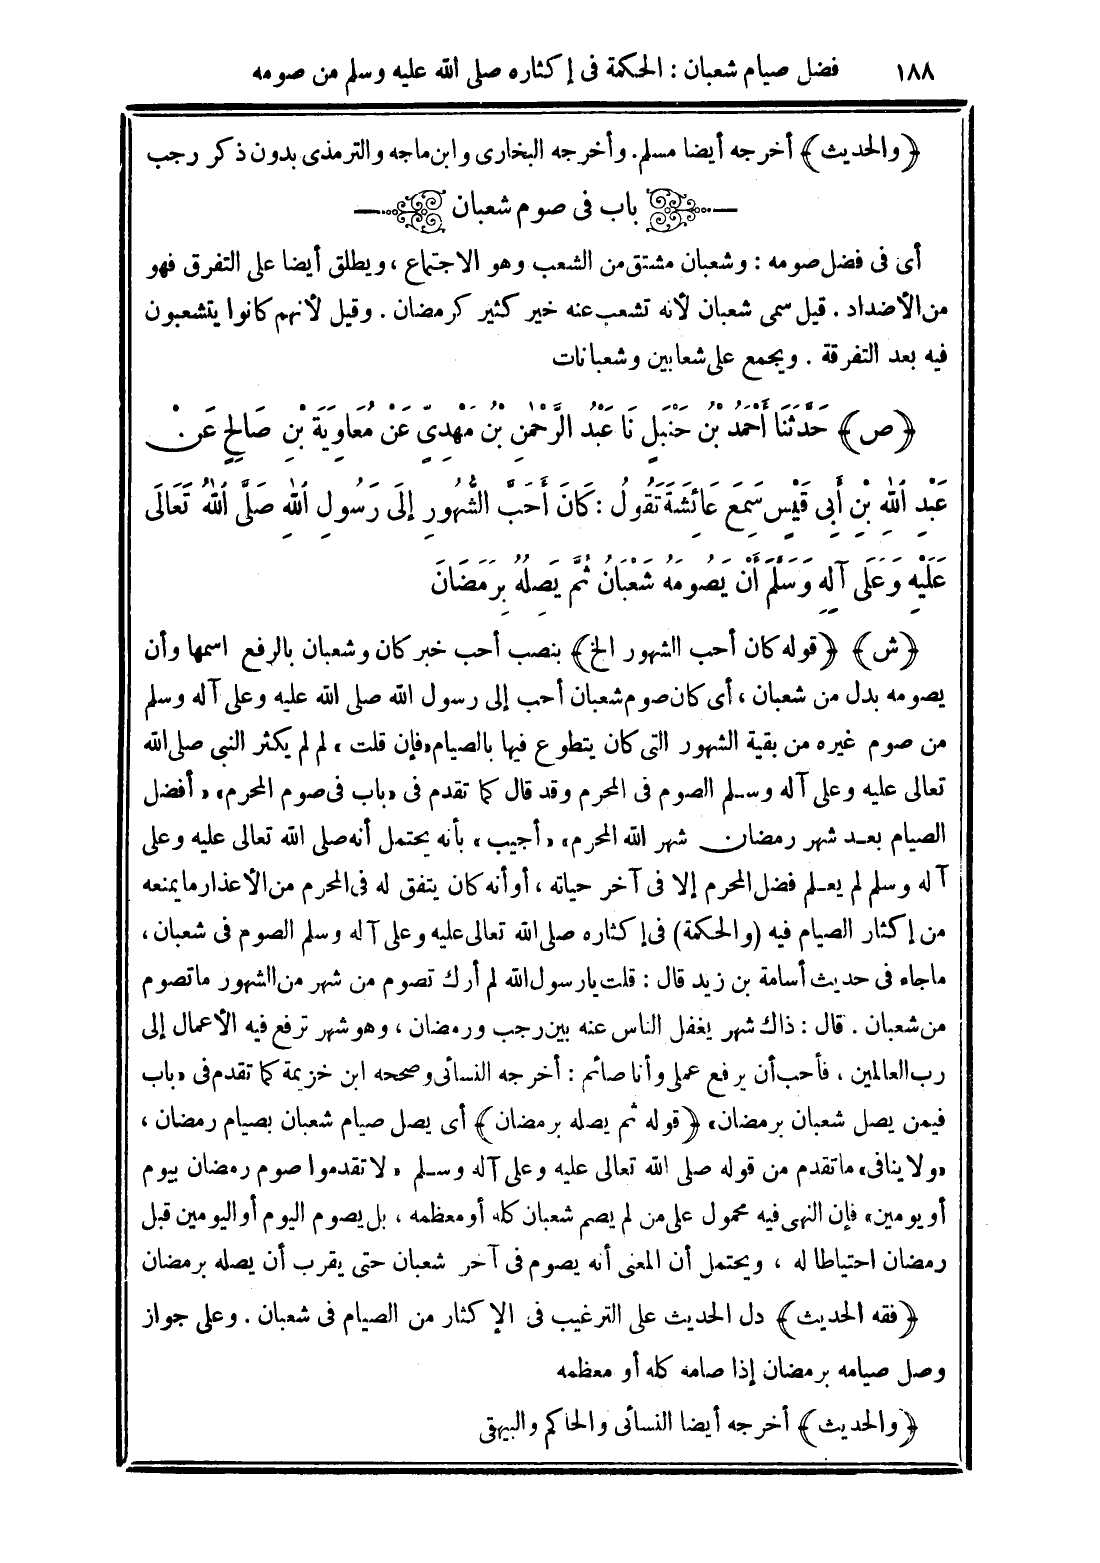 ١٨٨ فضل صيام شعبان : الحكمة فى إكثاره صلى الله عليه وسلم من صومه
﴿والحديث﴾ أخرجه أيضا مسلم. وأخرجه البخارى وابن ماجه والترمذى بدون ذكر رجب
باب فى صوم شعبان
أى فى فضل صومه : وشعبان مشتق من الشعب وهو الاجتماع ، ويطلق أيضا على التفرق فهو
من الأضداد . قيل سمى شعبان لأنه تشعب عنه خير كثير كرمضان . وقيل لأنهم كانوا يتشعبون
فيه بعد التفرقة . ويجمع على شعابين وشعبانات
﴿ص﴾ حَدَّثَنَا أَحْمَدُ بْنُ حَنْبَلٍ نَا عَبْدُ الرَّحْمٰنِ بْنُ مَهْدِىٍّ عَنْ مُعَاوِيَةَ بْنِ صَالِحٍ عَنْ
عَبْدِ اللهِ بْنِ أَبِى قَيْسٍ سَمِعَ عَائِشَةَ تَقُولُ : كَانَ أَحَبَّ الشُّهُورِ إِلَى رَسُولِ اللهِ صَلَّى اللهُ تَعَالَى
عَلَيْهِ وَعَلَى آلِهِ وَسَلَّمَ أَنْ يَصُومَهُ شَعْبَانُ ثُمَّ يَصِلُهُ بِرَمَضَانَ
﴿ش﴾ ﴿قوله كان أحب الشهور الخ﴾ بنصب أحب خبر كان وشعبان بالرفع اسمها وأن
يصومه بدل من شعبان ، أى كان صوم شعبان أحب إلى رسول الله صلى الله عليه وعلى آله وسلم
من صوم غيره من بقية الشهور التى كان يتطوع فيها بالصيام «فإن قلت » لم لم يكثر النبى صلى الله
تعالى عليه وعلى آله وسلم الصوم فى المحرم وقد قال كما تقدم فى «باب فى صوم المحرم» « أفضل
الصيام بعد شهر رمضان شهر الله المحرم» « أجيب » بأنه يحتمل أنه صلى الله تعالى عليه وعلى
آله وسلم لم يعلم فضل المحرم إلا فى آخر حياته ، أو أنه كان يتفق له فى المحرم من الأعذار ما يمنعه
من إكثار الصيام فيه (والحكمة) فى إكثاره صلى الله تعالى عليه وعلى آله وسلم الصوم فى شعبان ،
ماجاء فى حديث أسامة بن زيد قال : قلت يارسول الله لم أرك تصوم من شهر من الشهور ما تصوم
من شعبان . قال : ذاك شهر يغفل الناس عنه بين رجب ورمضان ، وهو شهر ترفع فيه الأعمال إلى
رب العالمين ، فأحب أن يرفع عملى وأنا صائم : أخرجه النسائى وصححه ابن خزيمة كما تقدم فى «باب
فيمن يصل شعبان برمضان» ﴿قوله ثم يصله برمضان﴾ أى يصل صيام شعبان بصيام رمضان ،
«ولا ينافى» ما تقدم من قوله صلى الله تعالى عليه وعلى آله وسلم « لا تقدموا صوم رمضان بيوم
أو يومين» فإن النهى فيه محمول على من لم يصم شعبان كله أو معظمه ، بل يصوم اليوم أو اليومين قبل
رمضان احتياطا له ، ويحتمل أن المعنى أنه يصوم فى آخر شعبان حتى يقرب أن يصله برمضان
﴿فقه الحديث﴾ دل الحديث على الترغيب فى الإكثار من الصيام فى شعبان . وعلى جواز
وصل صيامه برمضان إذا صامه كله أو معظمه
﴿والحديث﴾ أخرجه أيضا النسائى والحاكم والبيهقى